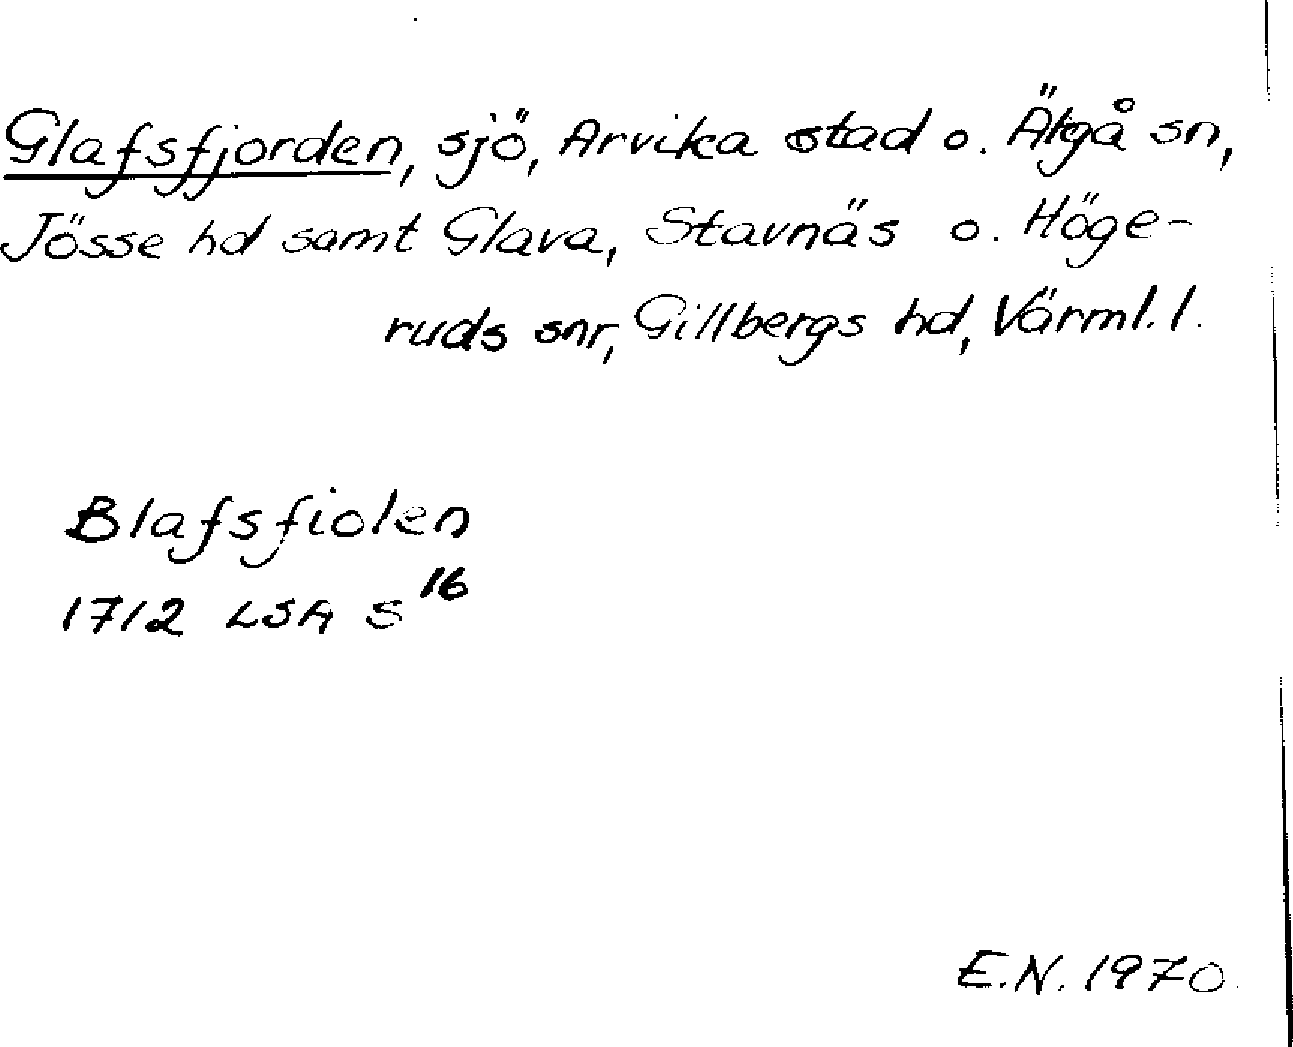 Glafsfjorden, sjö, Arvika stad o. Älgå sn,
Jösse hd samt Glava, Stavnäs o. Höge-
ruds snr, Gillbergs hd, Värml. l.
Blafsfiolen
1712 LSA S 16
E.N. 1970